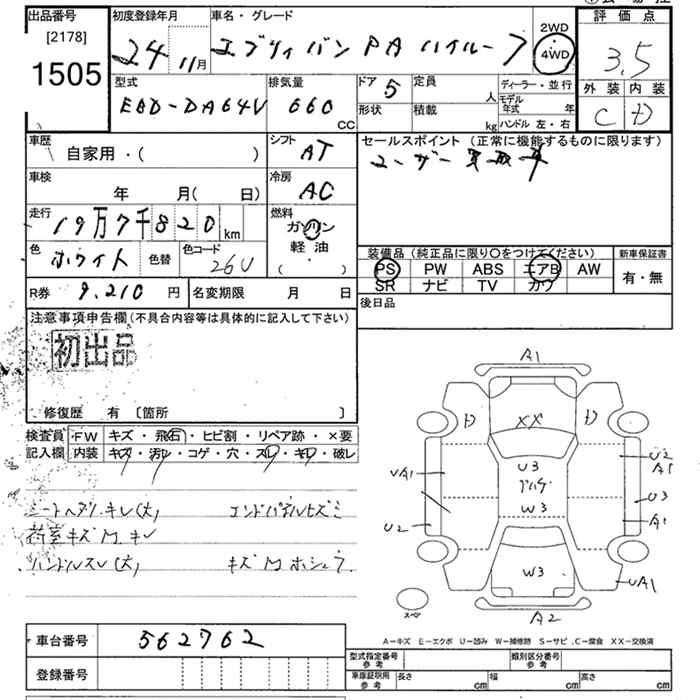 出品番号
[2178]
1505
初度登録年月
24 11月
車名・グレード
エブリィバン PA ハイルーフ
2WD
4WD
評価点
3.5
外装 内装
C D
型式
EBD-DA64V
排気量
660 CC
ドア 5
形状
定員 人
積載 kg
ディーラー・並行
モデル年式 年
ハンドル 左・右
車歴
自家用・( )
シフト AT
車検
年 月( 日)
冷房 AC
走行
19万7千820km
燃料
ガソリン
・
軽油
( )
色
ホワイト
色替
色コード
26U
セールスポイント(正常に機能するものに限ります)
ユーザー買取車
装備品(純正品に限り〇をつけてください)
PS PW ABS エアB AW
SR ナビ TV カワ
新車保証書
有・無
R券 9,210 円
名変期限 月 日
後日品
注意事項申告欄(不具合内容等は具体的に記入して下さい)
初出品
修復歴 有 〔箇所 〕
検査員記入欄
FW キズ・飛石・ヒビ割・リペア跡・×要
内装 キズ・汚レ・コゲ・穴・スレ・キレ・破レ
シートヘタリ・キレ(大) エンドパネルヒズミ
荷室キズM・キレ
ハンドルスレ(大) キズM ホシュウ
A1
D D
XX
U3
W3
UA1
U2
U2
A1
U3
A1
UA1
W3
A2
スペア
A-キズ E-エクボ U-凹み W-補修跡 S-サビ C-腐食 XX-交換済
車台番号 562762
登録番号
型式指定番号 参考
類別区分番号 参考
車庫証明用 参考 長さ cm 幅 cm 高さ cm